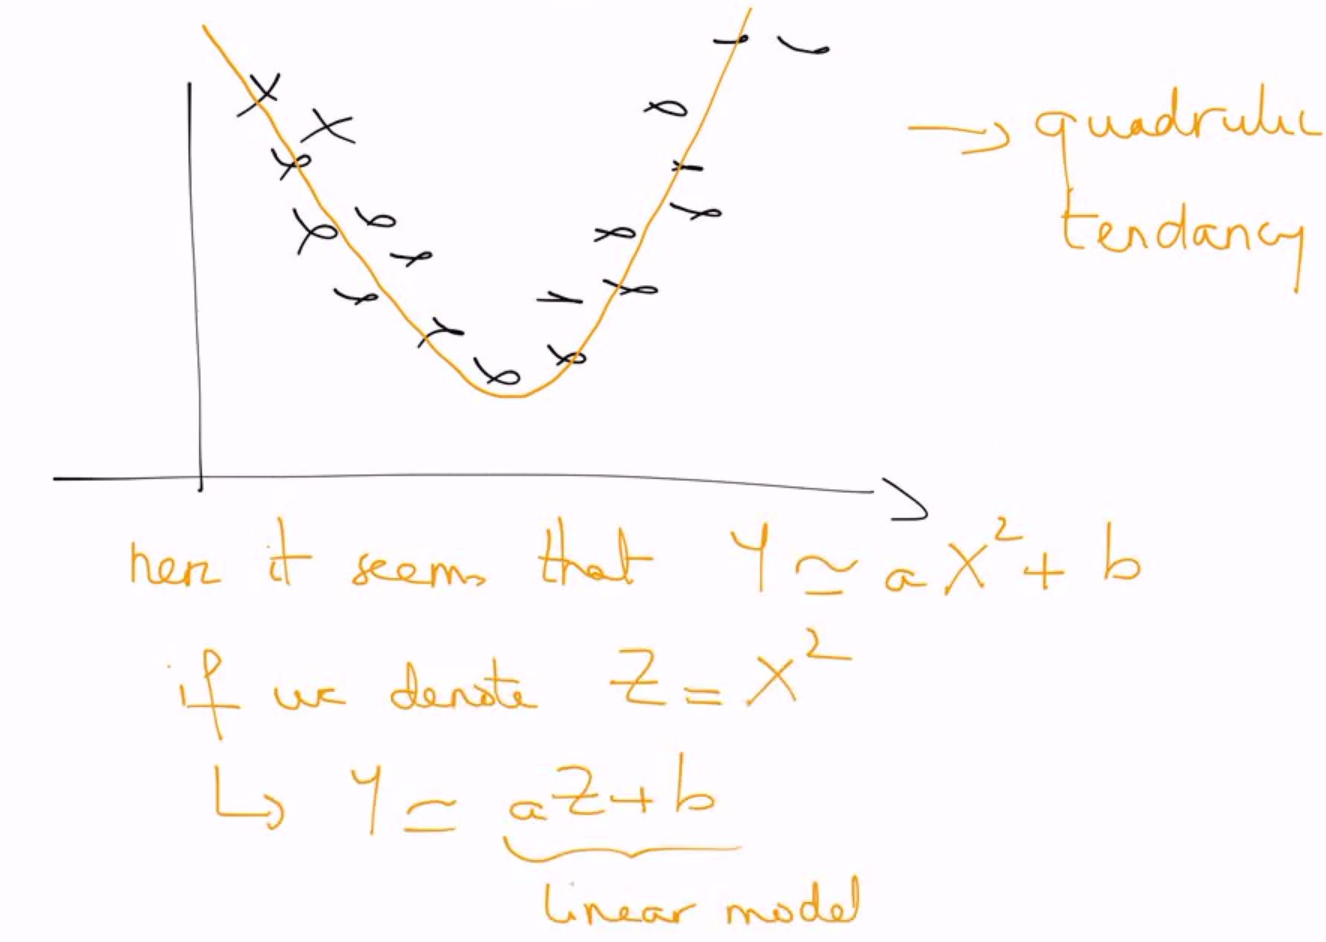 → quadratic
tendancy
here it seems that Y ≃ aX² + b
if we denote Z = X²
↳ Y ≃ aZ + b
linear model